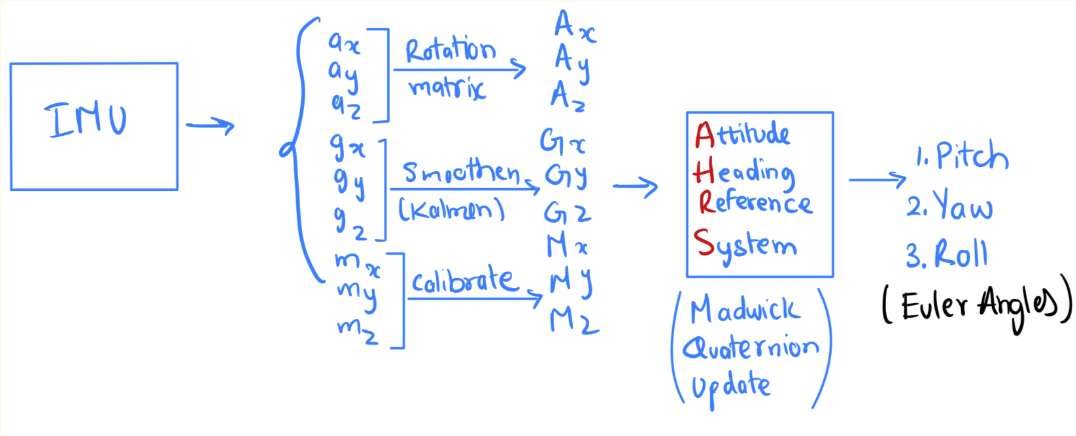 IMU
ax
ay
az
Rotation
matrix
Ax
Ay
Az
gx
gy
gz
Smoothen
(Kalmen)
Gx
Gy
Gz
mx
my
mz
Calibrate
Mx
My
Mz
Attitude
Heading
Reference
System
(Madwick
Quaternion
Update)
1. Pitch
2. Yaw
3. Roll
(Euler Angles)